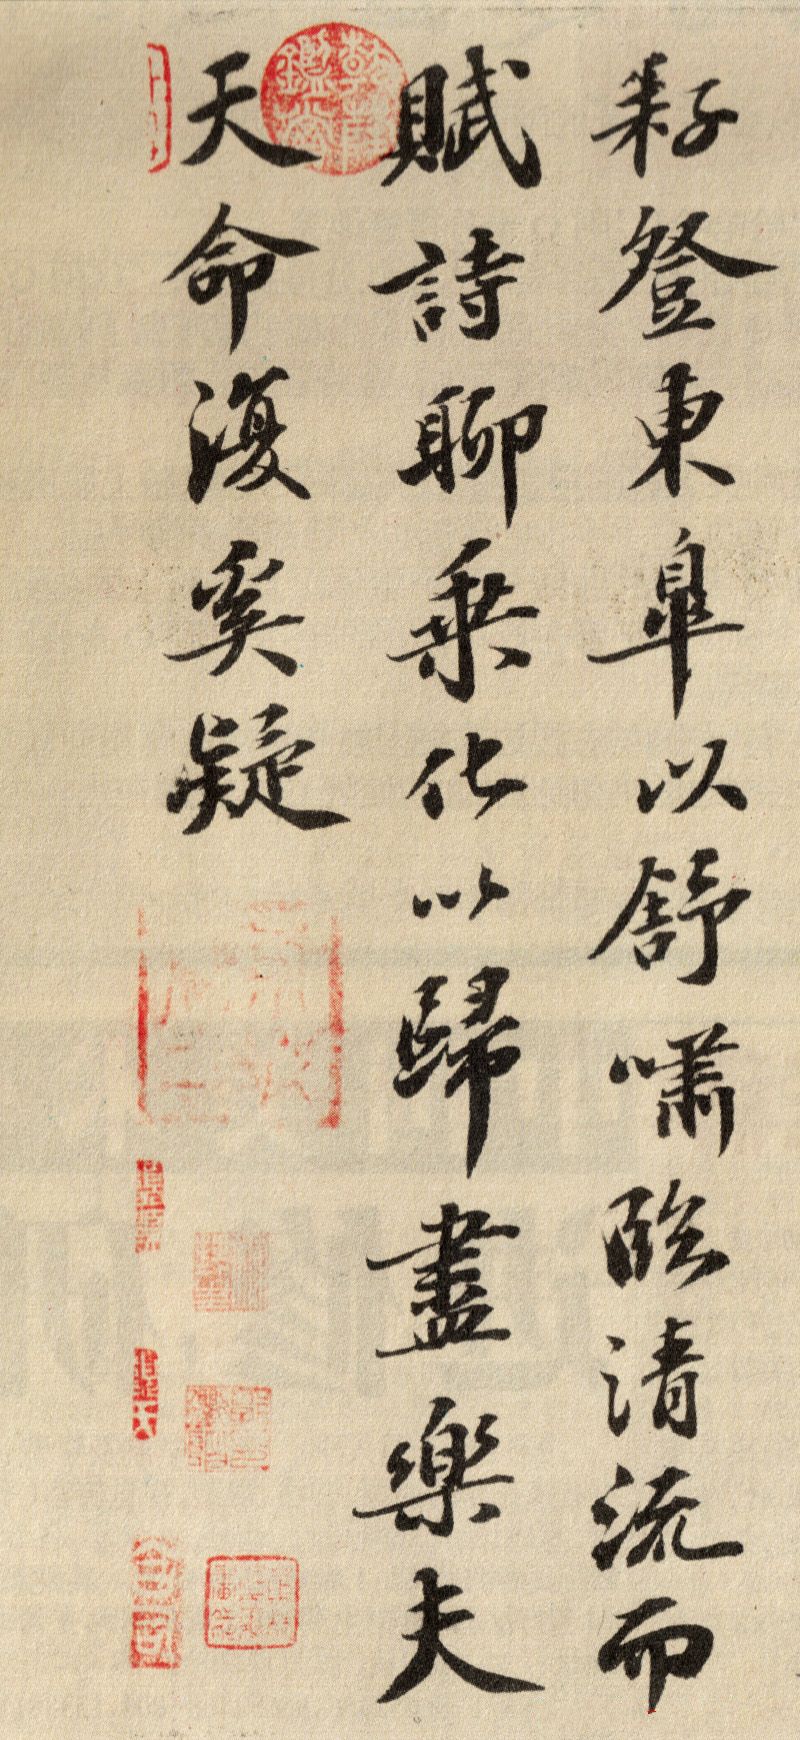 耔登東皋以舒嘯臨清流而
賦詩聊乘化以歸盡樂夫
天命復奚疑